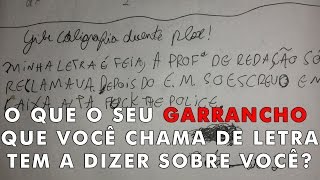 Caligrafia doente plox!
MINHA LETRA É FEIA, A PROFª DE REDAÇÃO SÓ
RECLAMAVA. DEPOIS DO E.M. SÓ ESCREVO EM
CAIXA ALTA FUCK THE POLICE.
O QUE O SEU GARRANCHO
QUE VOCÊ CHAMA DE LETRA
TEM A DIZER SOBRE VOCÊ?